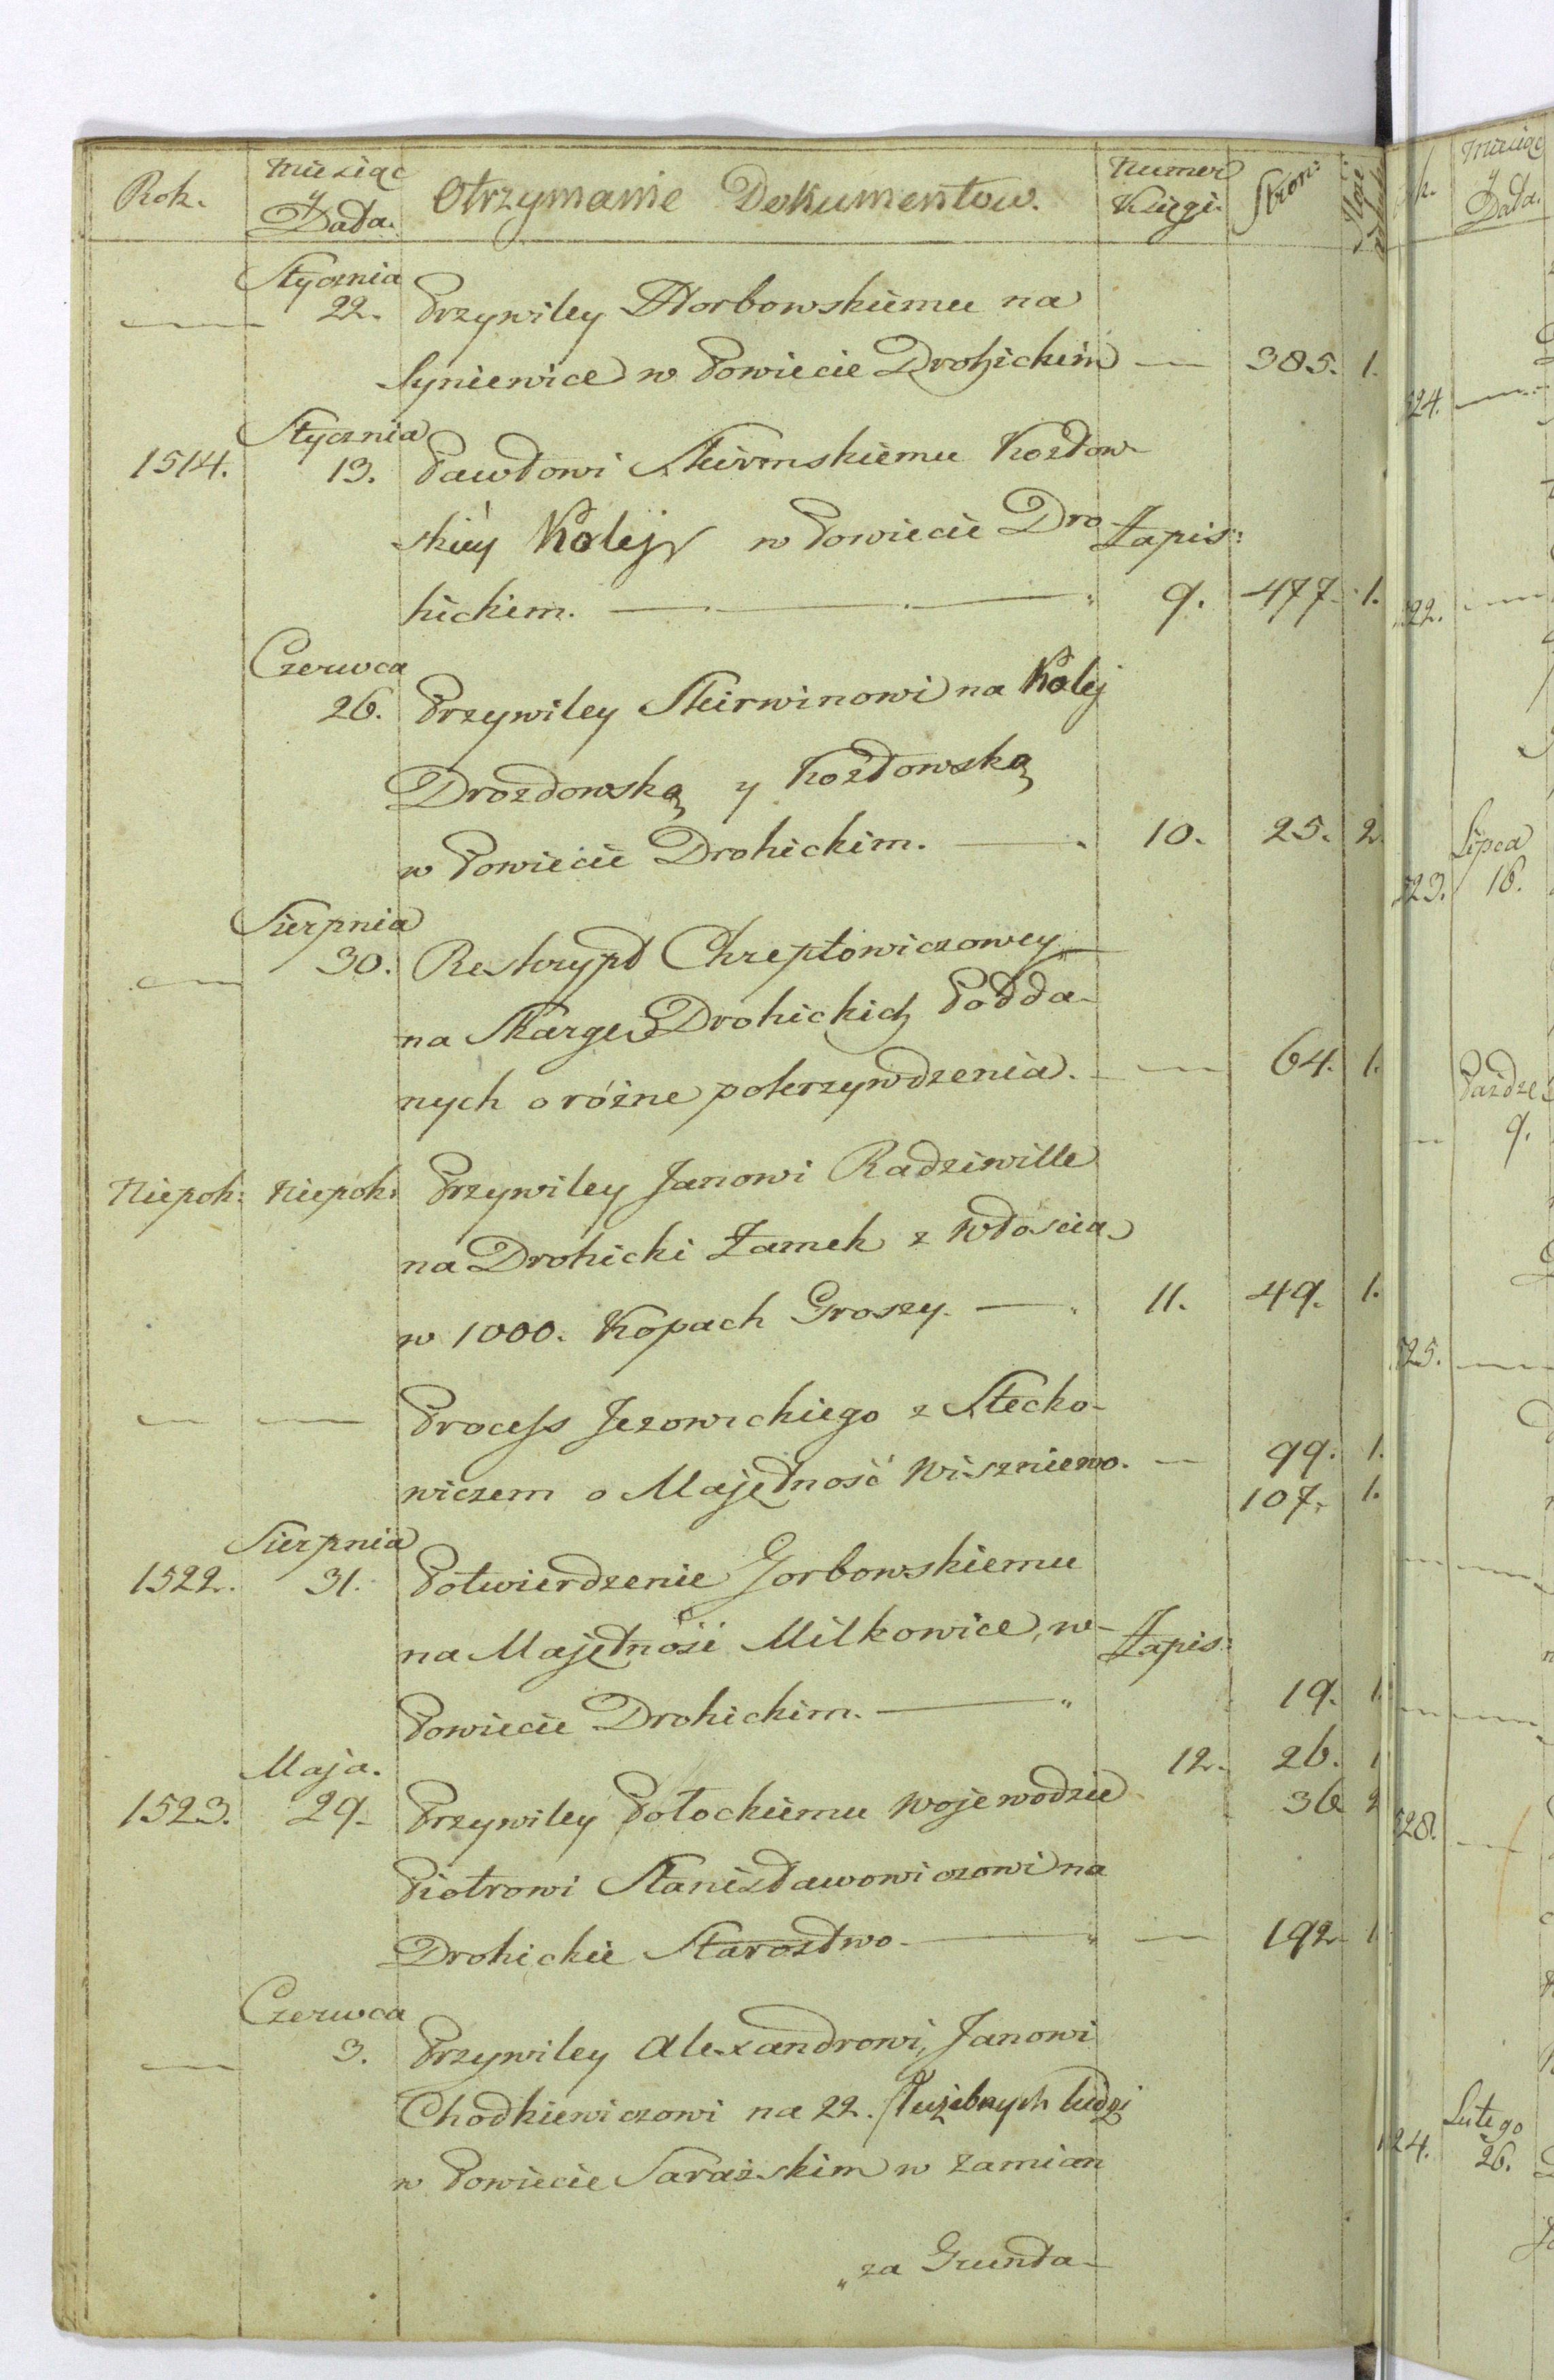 Rok. Miesiąc y Data. Otrzymanie Dokumentow. Numer Księgi. Stron:
Stycznia
— 22. Przywiley Horbowskiemu na
Syniewice w Powiecie Drohickim — 385. 1.
Stycznia
1514. 13. Pawłowi Kozłow-
skiey Kolej w Powiecie Dro Zapis:
hickiem. — 9. 477. 1.
Czerwca
26. Przywiley Skirwinowi na Kolej
Drozdowską y Kozłowską
w Powiecie Drohickim. — 10. 25. 2.
Sierpnia
— 30. Reskrypt Chreptowiczowey
na Skargę Drohickich Podda-
nych o różne pokrzywdzenia. — 64. 1.
Niepok: Niepok: Przywiley Janowi Radziwille
na Drohicki Zamek z Włoscią
w 1000. Kopach Groszy. — 11. 49. 1.
— — Process Jezowickiego z Stecko-
wiczem o Majętność Wiszniewo. — 99. 1.
107. 1.
Sierpnia
1522. 31. Potwierdzenie Gorbowskiemu
na Majętność Milkowice, w- Zapis:
Powiecie Drohickim. — 19. 1.
Maja. 12. 26. 1
1523. 29. Przywiley Połockiemu Wojewodzie 36 2
Piotrowi Stanisławowiczowi na
Drohickie Starostwo — — 192 1
Czerwca
— 3. Przywiley Alexandrowi, Janowi
Chodkiewiczowi na 22. służebnych ludzi
w Powiecie Sarażskim w zamian
„za Grunta-
Miesiąc y Data.
524. —
522. —
Lipca
523. 16.
Paździe
— 9.
525. —
528. —
Lutego
524. 26.